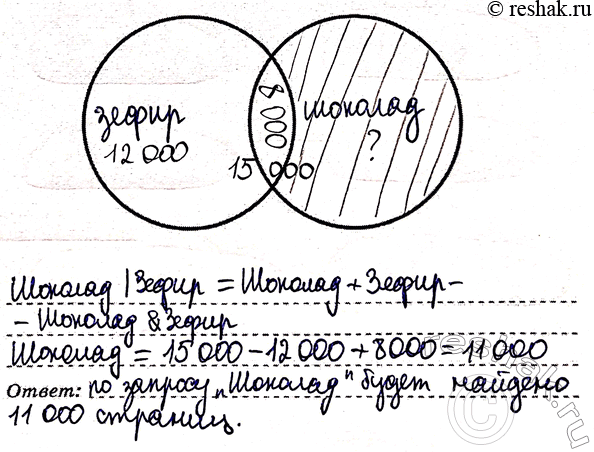 © reshak.ru
зефир
12 000
8 000
шоколад
?
15 000
Шоколад | Зефир = Шоколад + Зефир –
– Шоколад & Зефир
Шоколад = 15 000 – 12 000 + 8000 = 11 000
Ответ: по запросу „Шоколад" будет найдено
11 000 страниц.
reshak.ru